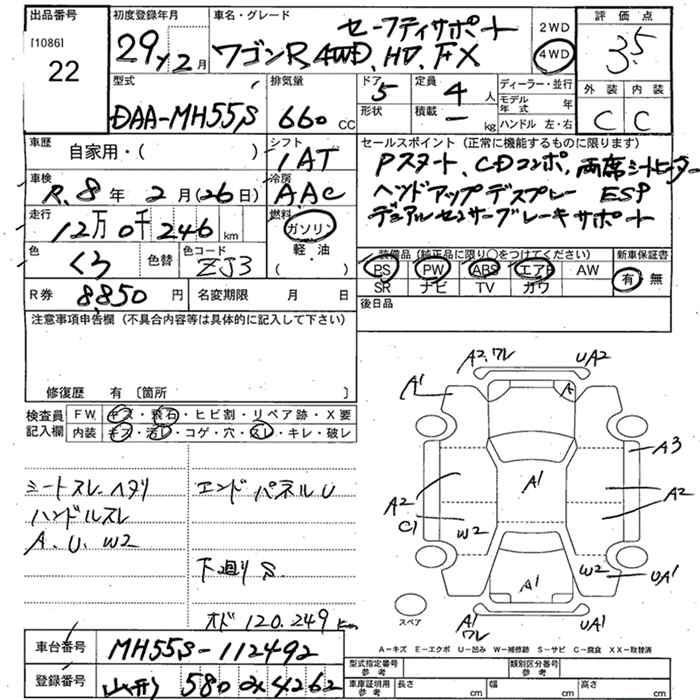 出品番号
[1086]
22
初度登録年月
29年12月
車名・グレード
セーフティサポート
ワゴンR 4WD、HV、FX
2WD
4WD
評価点
3.5
外装 内装
C C
型式
DAA-MH55S
排気量
660 CC
ドア
5
形状
定員
4 人
積載
— kg
ディーラー・並行
モデル年式 年
ハンドル 左・右
車歴
自家用・( )
シフト
IAT
冷房
AAC
燃料
ガソリン
軽・油
( )
車検
R.8年2月(26日)
走行
12万0千246km
色
くろ
色替
色コード
ZJ3
R券 8850円
名変期限 月 日
セールスポイント(正常に機能するものに限ります)
Pスタート、CDコンポ、両席シートヒーター
ヘッドアップデスプレー ESP
デュアルセンサーブレーキサポート
装備品(純正品に限り○をつけてください)
PS PW ABS エアB AW
SR ナビ TV カワ
新車保証書
有・無
後日品
注意事項申告欄(不具合内容等は具体的に記入して下さい)
修復歴 有〔箇所 〕
検査員記入欄
FW キズ・飛石・ヒビ割・リペア跡・X要
内装 キズ・汚レ・コゲ・穴・スレ・キレ・破レ
シートスレ、ヘタリ
ハンドルスレ
A、U、W2
エンドパネルU
下廻りS
オド120.249km
A2、ワレ
UA2
A1
A
A3
A1
A2
C1
W2
A2
W2
UA1
A1
A1
ワレ
UA1
スペア
A-キズ E-エクボ U-凹み W-補修跡 S-サビ C-腐食 XX-取替済
車台番号 MH55S-112492
登録番号 山形 580 4262
型式指定番号
参考
類別区分番号
参考
車庫証明用
参考
長さ cm
幅 cm
高さ cm